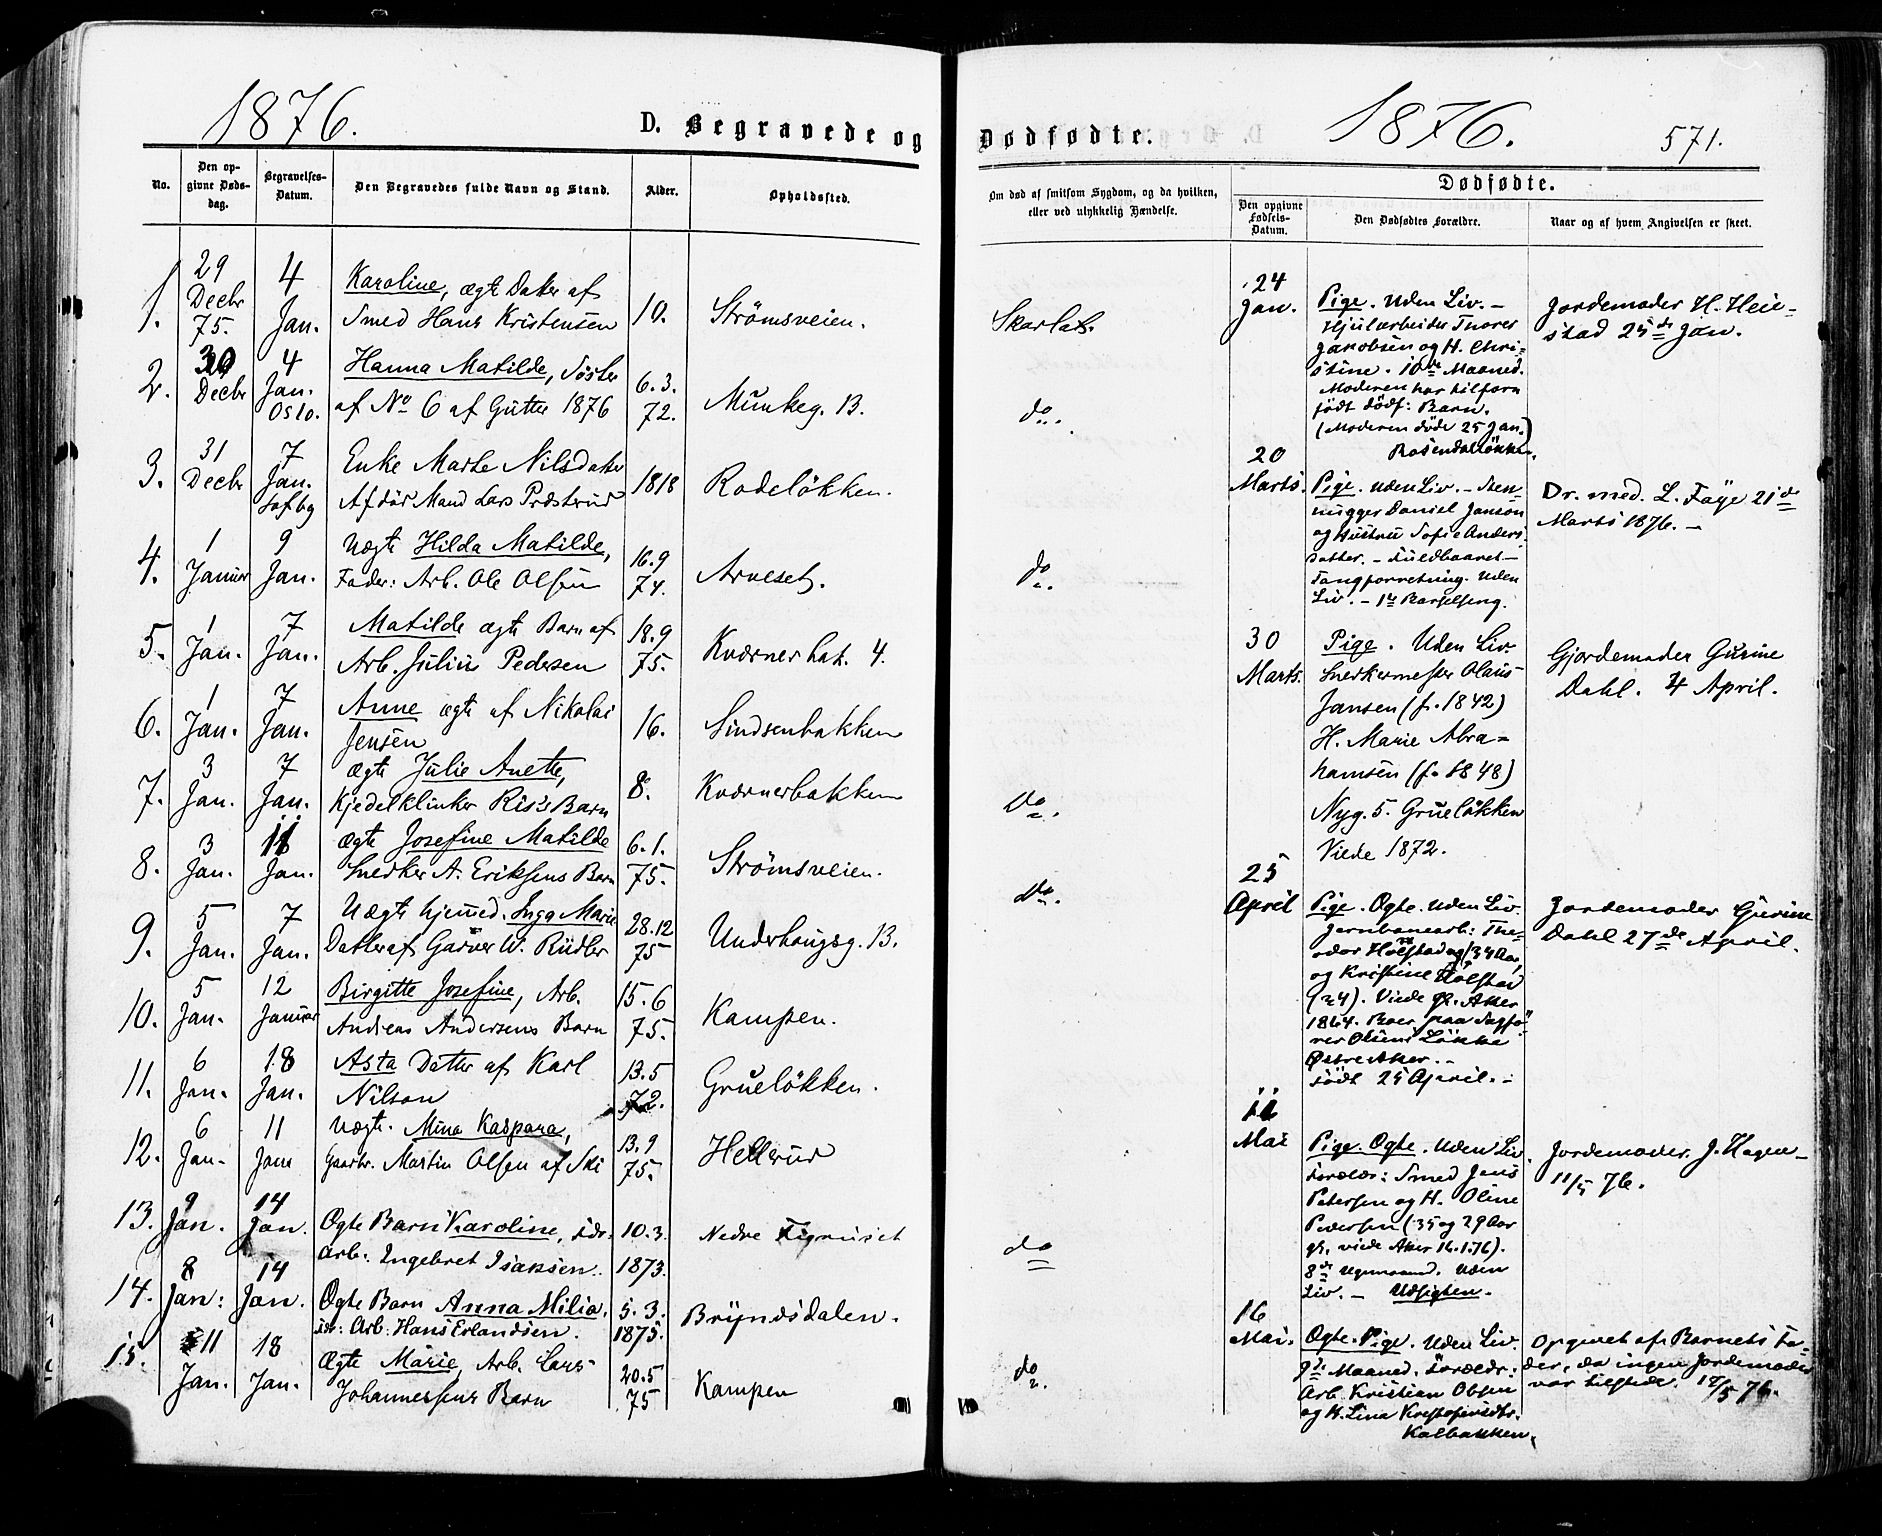 1876.
D. Begravede og
No.
Den op-
givne Døds-
dag.
Begravelses-
Datum.
Den Begravedes fulde Navn og Stand.
Alder.
Opholdssted.
1.
29
Decbr
75.
4
Jan.
Karoline, ægte Datter af
Smed Hans Kristensen
10.
Strömsveien.
2.
30
Decbr
4
Jan.
Oslo.
Hanna Matilde, Söster
af No 6 af Gutter 1876
6.3.
72.
Munkeg. 13.
3.
31
Decbr
7
Jan.
Enke Marte Nilsdatter
Afdöd Mand Lars Præsterud
1818
Rodelökken.
4.
1
Januar
9
Jan.
Uægte Hilda Matilde,
Fader: Arb. Ole Olsen
16.9
74.
Arveset.
5.
1
Jan.
7
Jan.
Matilde ægte Barn af
Arb. Julius Pedersen
18.9
75.
Kværnerbak. 4.
6.
1
Jan.
7
Jan.
Anne ægte af Nikolai
Jensen
16.
Sindsenbakken
7.
3
Jan.
7
Jan.
ægte Julie Anette,
Kjedelklinker Riis's Barn
8.
Kværnerbakken
8.
3
Jan.
11
Jan.
ægte Josefine Matilde
Snedker A. Eriksens Barn
6.1.
75.
Strömsveien.
9.
5
Jan.
7
Jan.
Uægte hjemmed. Inga Marie
Datter af Garver W. Rüdler
28.12
75
Underhaugsg. 13.
10.
5
Jan.
12
Januar
Birgitte Josefine, Arb.
Andreas Andersens Barn
15.6
75.
Kampen.
11.
6
Jan.
18
Jan.
Asta Datter af Karl
Nilson
13.5
72.
Gruelökken.
12.
6
Jan.
11
Jan
Uægte. Mina Kaspara,
Gaardbr. Martin Olsen af Ski
13.9
75.
Hellerud
13.
9
Jan.
14
Jan.
Ægte Barn Karoline, Fdr.
Arb: Ingebret Isaksen.
10.3.
1873.
Nedre
14.
8
Jan:
14
Jan.
Ægte Barn Anna Milia.
Fdr: Arb: Hans Erlandsen.
5.3.
1875.
Bryndsdalen.
15.
11
Jan.
18
Jan.
Ægte Marie, Arb. Lars
Johannessens Barn
20.5
75
Kampen
Dødfødte.
1876.
571.
Om død af smitsom Sygdom, og da hvilken,
eller ved ulykkelig Hændelse.
Dødfødte.
Den opgivne
Fødsels-
Datum.
Den Dødfødtes Forældre.
Naar og af hvem Angivelsen er skeet.
Skarlat.
do.
do.
do.
do.
do
do.
24
Jan.
Pige. Uden Liv. -
Hjularbeider Thorer
Jakobsen og H. Chri-
stine. 10de Maaned.
Moderen har tilforn
födt dödf: Barn.
(Moderen döde 25 Jan.)
Rosendallökken.
Jordemoder H. Heie-
stad 25de Jan.
20
Marts.
Pige. Uden Liv. - Sten-
hugger Daniel Janson
og Hustru Sofie Anders
datter. - Fuldbaaret -
Tangforretning. Uden
Liv. - 1te Barselseng.
Dr. med. L. Faye 21de
Marts 1876. -
30
Marts.
Pige. Uden Liv.
Snedkermester Olaus
Jansen (f. 1842)
H. Marie Abra-
hamsen (f. 1848)
Nyg. 5. Gruelökken
Viede 1872.
Gjordemoder Gurine
Dahl. 4 April.
25
April
Pige. Ægte. Uden Liv.
Jernbanearb: Theo-
dor Holstad (34 Aar)
og Kristine Holstad
(34). Viede gl. Aker
1864. Boer paa Sagfö-
rer Olsens Løkke
Østre Aker. -
Födt 25 April. -
Jordemoder Gurine
Dahl 27de April.
11
Mai
Pige. Ægte. Uden Liv.
Forældr: Smed Jens
Petersen og H. Oline
Pedersen (35 og 29 Aar
gl. viede Aker 16.1.76).
8de Uden
Liv. - Udsigten.
Jordemoder. J. Hagen -
11/5 76.
16
Mai.
Ægte. Pige. Uden Liv.
9de Maaned. Forældr:
Arb. Kristian Olsen
og H. Lina Kristofersdtr.
Kalbakken.
Opgivet af Barnets Fa-
der, da ingen Jordemoder
var tilstede. 17/5 76.